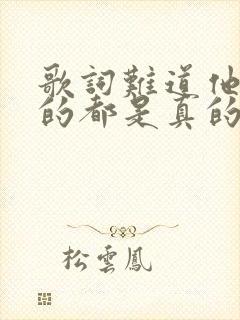 歌詞難道他
的都是真的
松雲鳳